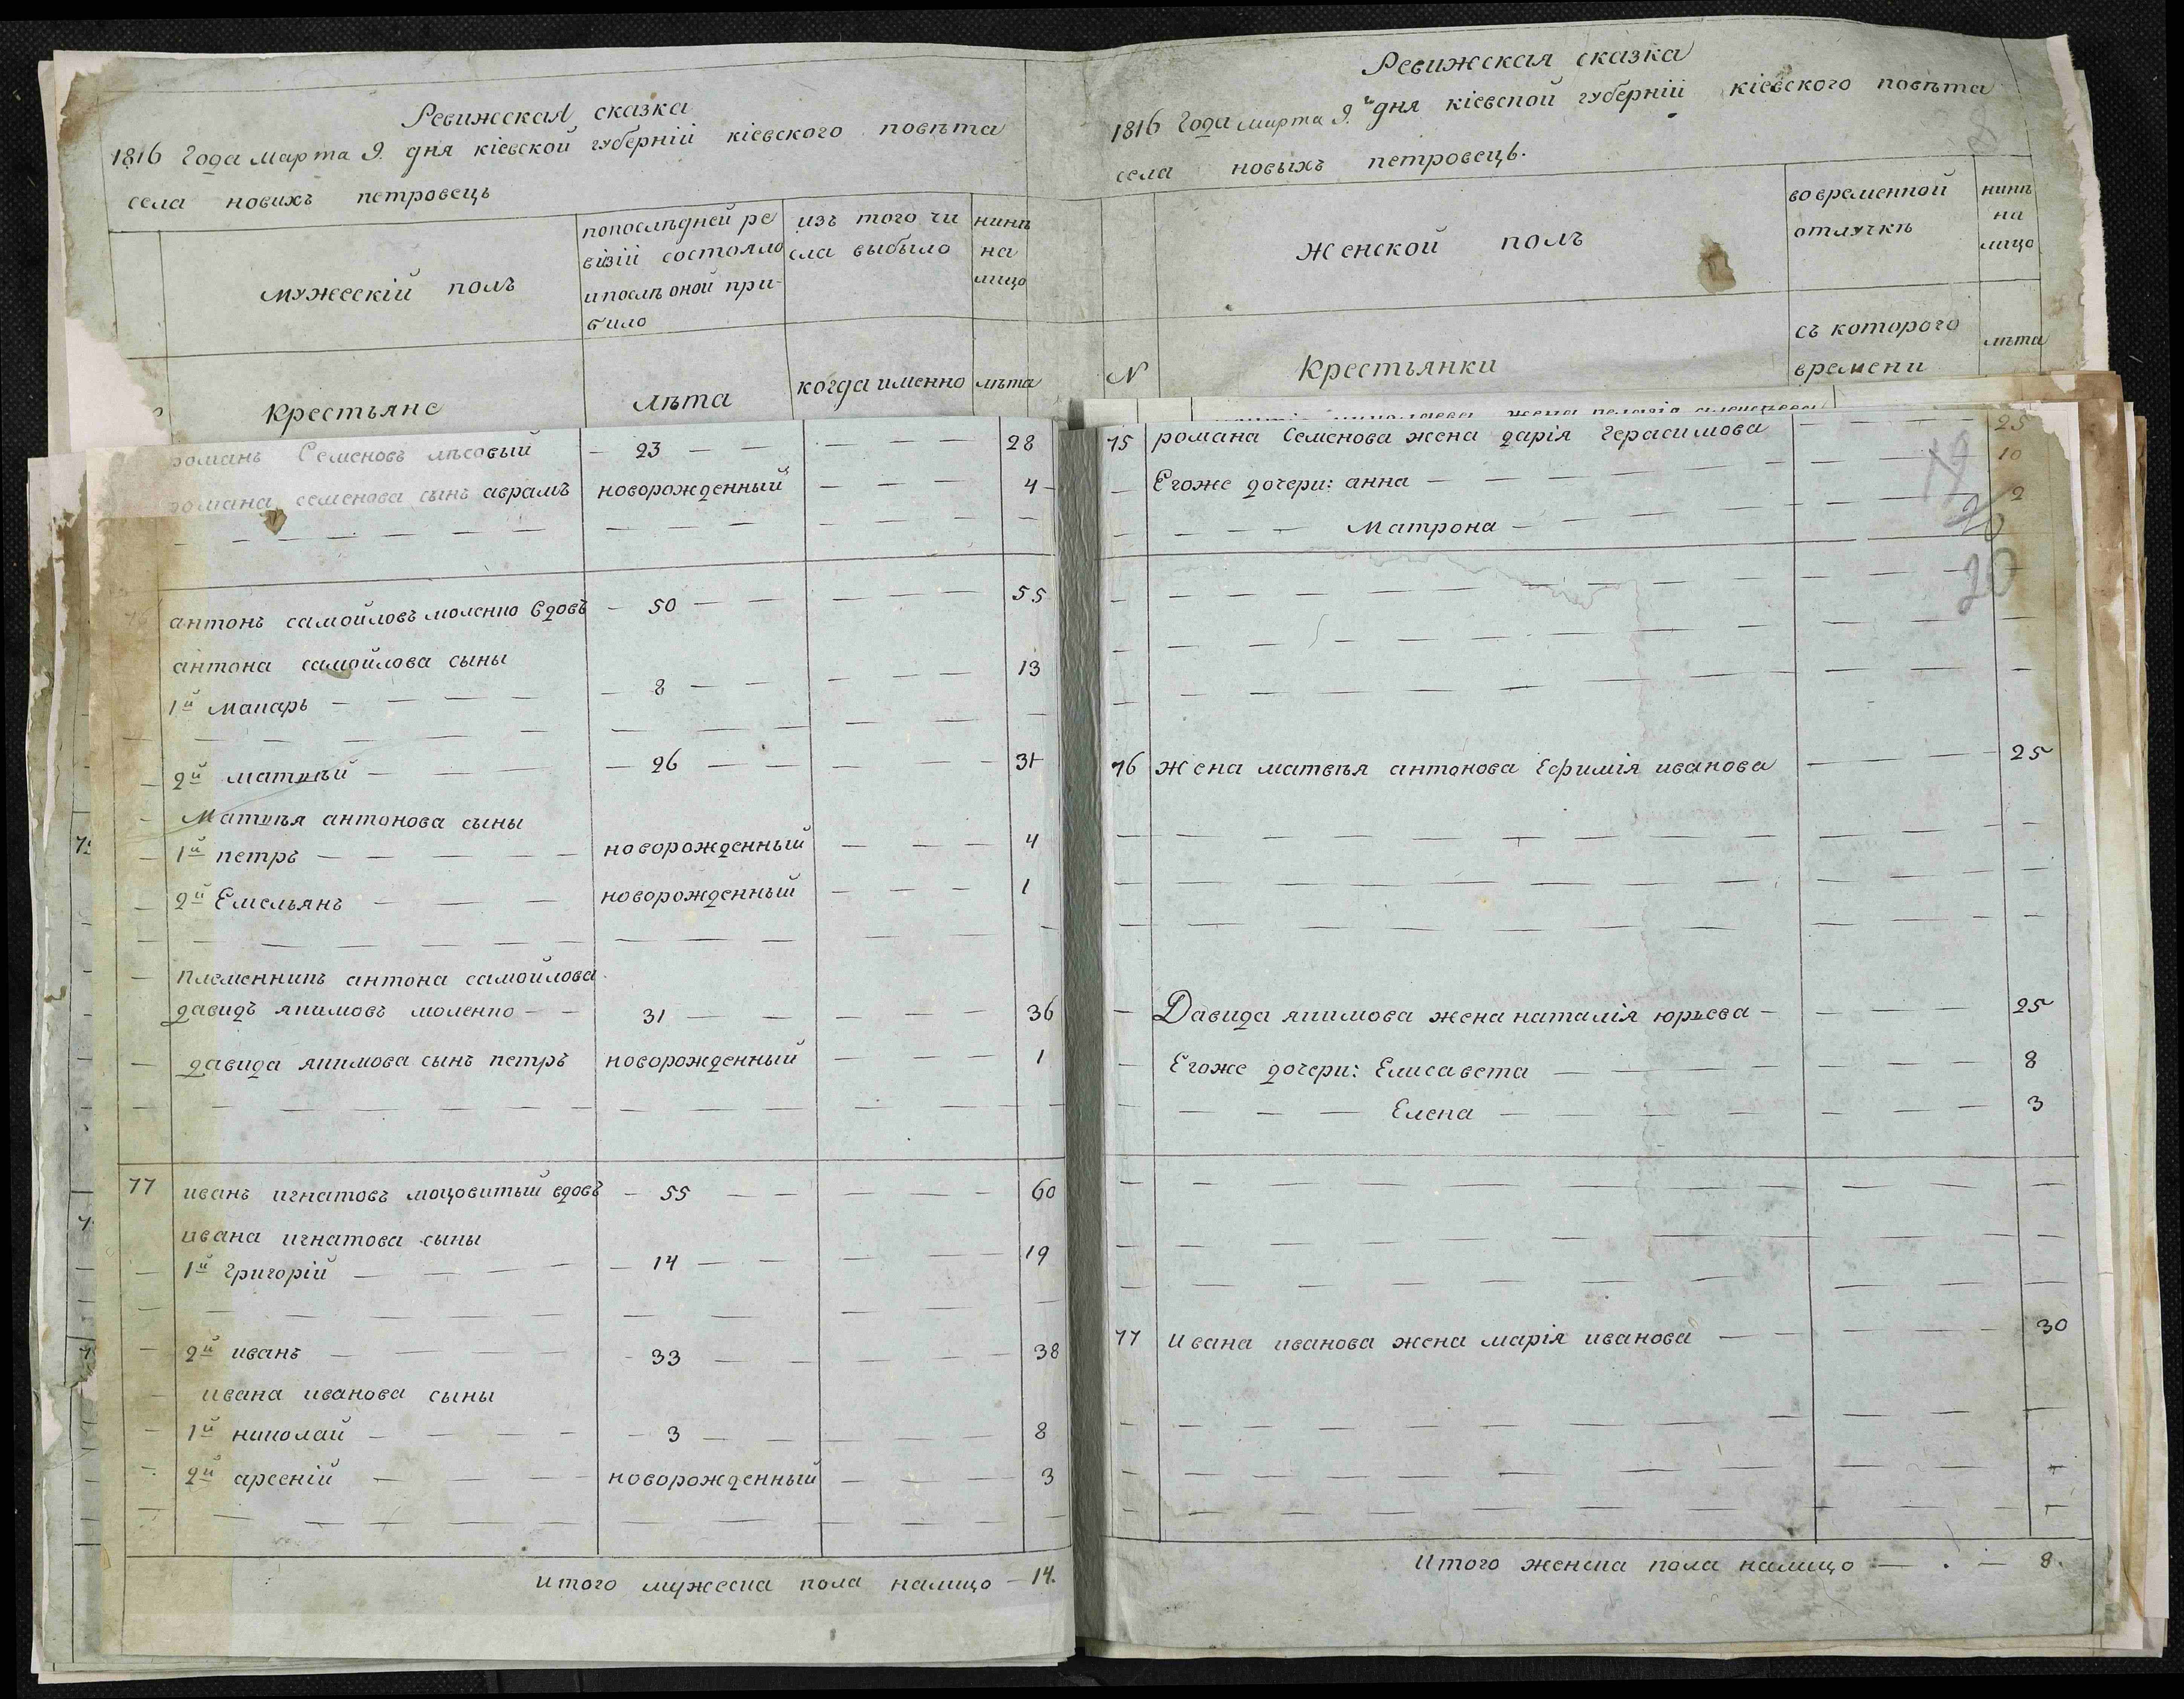 Ревижская сказка
1816 Года марта 9. дня кіевской губерніи кіевского повѣта
села новихъ петровець
мужескій полъ
попослѣдней ре
візіи состояло
ипослѣ оной при-
било
изъ того чи
сла выбыло
нинѣ
на
лицо
Крестьяне
лѣта
когда именно
лѣта
романъ Семеновъ лѣсовый — 23 — — — — — 28
романа семенова сынъ аврамъ новорожденный — — — 4
антонъ самойловъ моленко вдовъ — 50 — — — — — 55
антона самойлова сыны
1й Макаръ — — — — 8 — — — — — 13
2й матвѣй — — — — 26 — — — — — 31
Матвѣя антонова сыны
1й петръ — — — — — новорожденный — — — 4
2й Емельянъ — — — новорожденный — — — 1
племенникъ антона самойлова
давидъ якимовъ моленко — — 31 — — — — — 36
давида якимова сынъ петръ новорожденный — — — 1
77 иванъ игнатовъ моцовитый вдовъ — 55 — — — — — 60
ивана игнатова сыны
1й Григорій — — — — — 14 — — — — — 19
2й иванъ — — — — — 33 — — — — — 38
ивана иванова сыны
1й николай — — — — — 3 — — — — — 8
2й арсеній — — — новорожденный — — — 3
итого мужеска пола налицо — 14.
Ревижская сказка
1816 Года марта 9.го дня кіевской губерніи кіевского повѣта
села новыхъ петровець.
Женской полъ
вовременной
отлучкѣ
нинѣ
на
лицо
N
Крестьянки
съ которого
времени
лѣта
75 романа Семенова жена дарія Герасимова — — — 25
Егоже дочери: анна — — — — — 10
Матрона — — — — — 2
19
20
20
76 жена матвѣя антонова Ефимія иванова — — — 25
Давида якимова жена наталія юрьева — — — — 25
Егоже дочери: Елисавета — — — — — 8
Елена — — — — — 3
77 Ивана иванова жена марія иванова — — — — — 30
Итого женска пола налицо — . — 8.